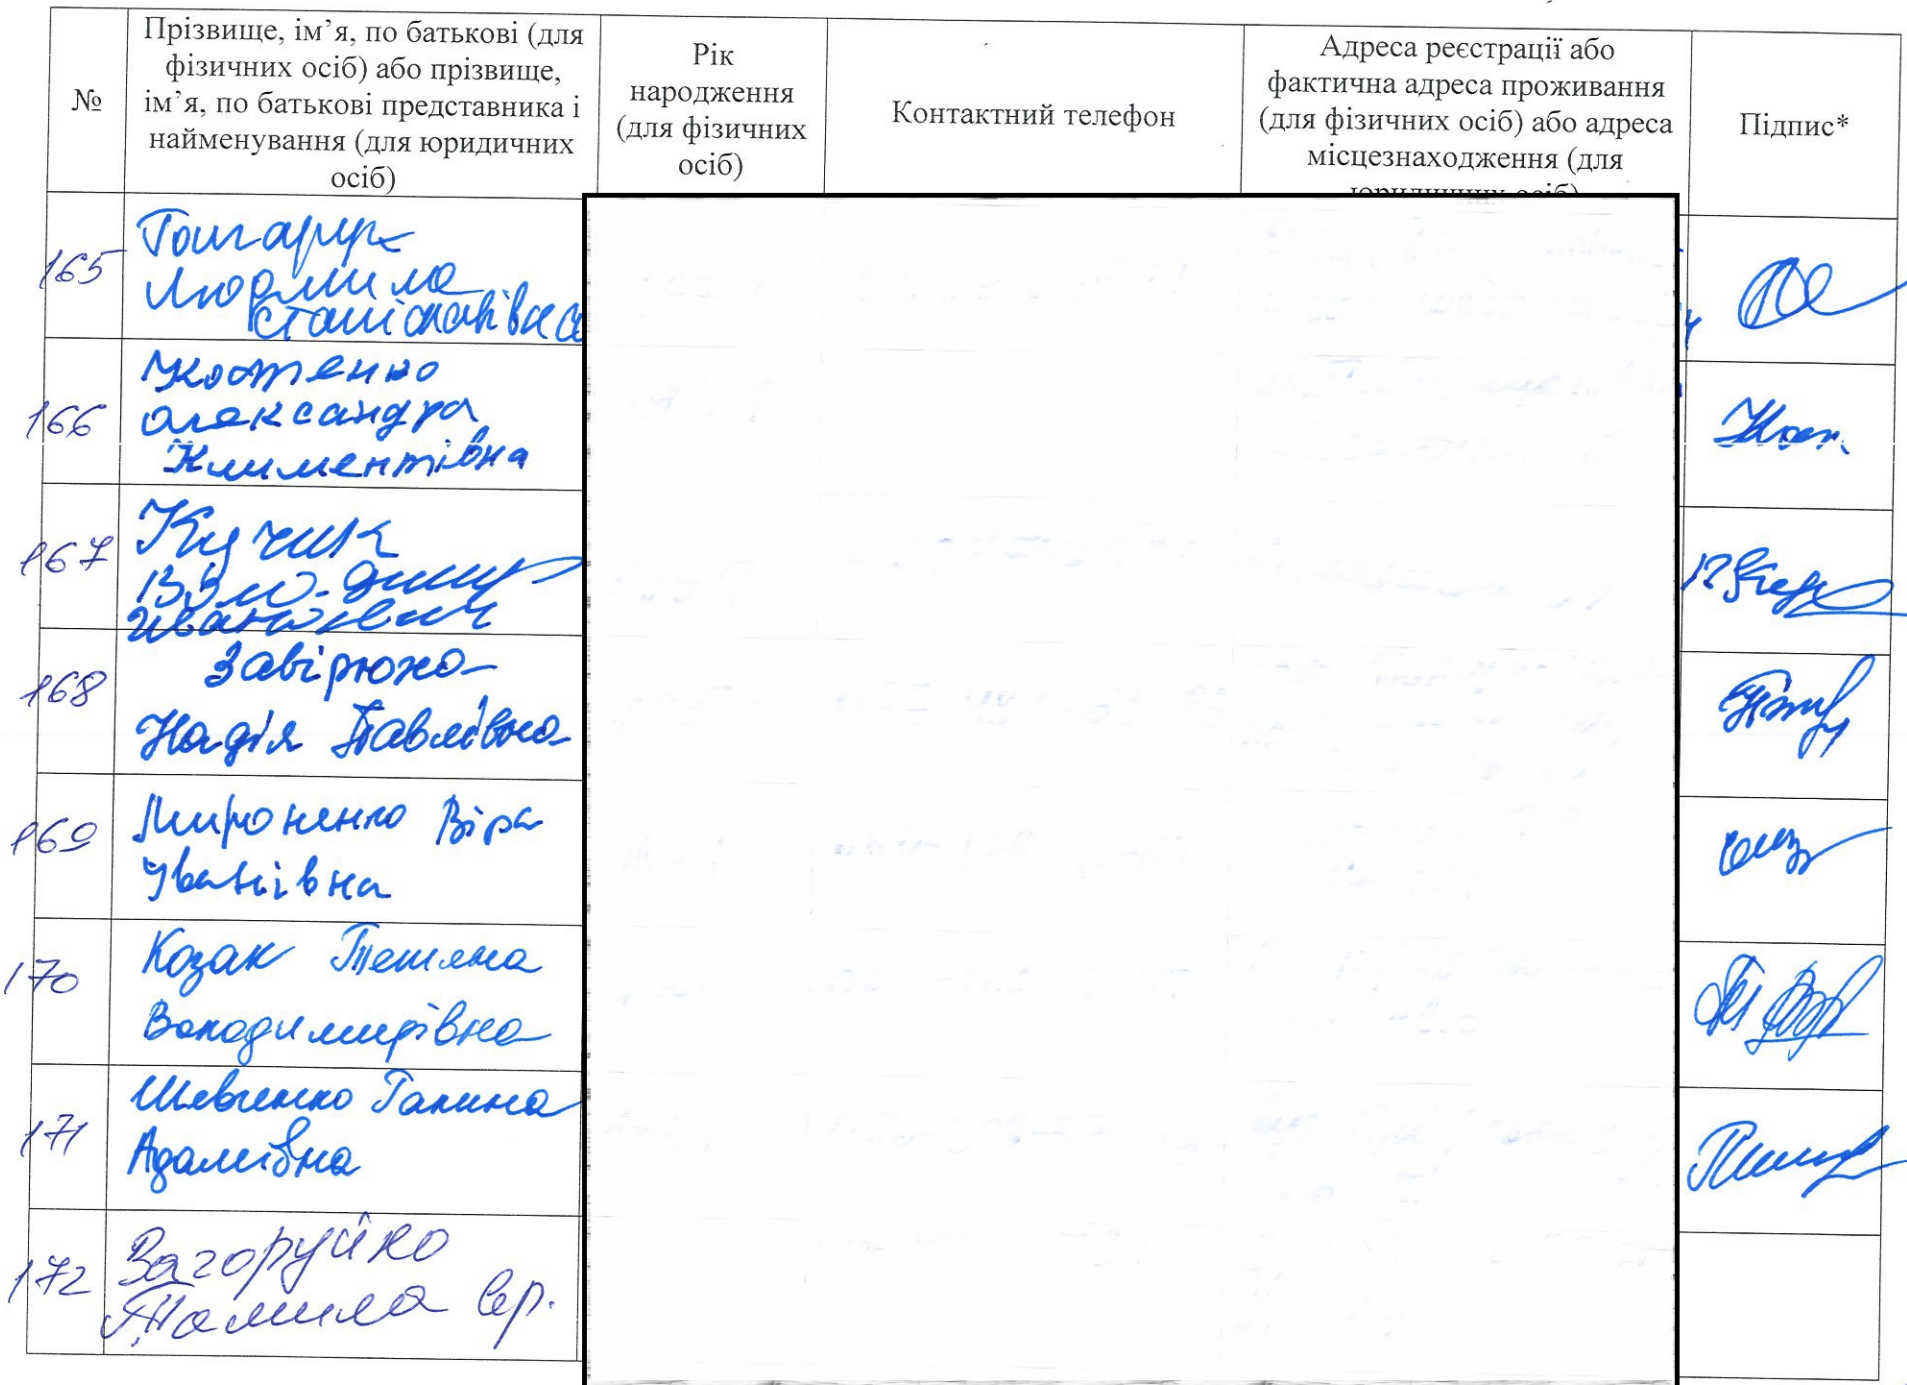 №
Прізвище, ім’я, по батькові (для
фізичних осіб) або прізвище,
ім’я, по батькові представника і
найменування (для юридичних
осіб)
Рік
народження
(для фізичних
осіб)
Контактний телефон
Адреса реєстрації або
фактична адреса проживання
(для фізичних осіб) або адреса
місцезнаходження (для
юридичних осіб)
Підпис*
165
Людмила
Станіславівна
166
Костенко
Олександра
Климентівна
167
Кучик
Іванович
168
Завірюха
Надія Павлівна
169
Мироненко Віра
Іванівна
170
Козак Тетяна
Володимирівна
171
Шевченко Галина
Адамівна
172
Загоруйко
Таміла